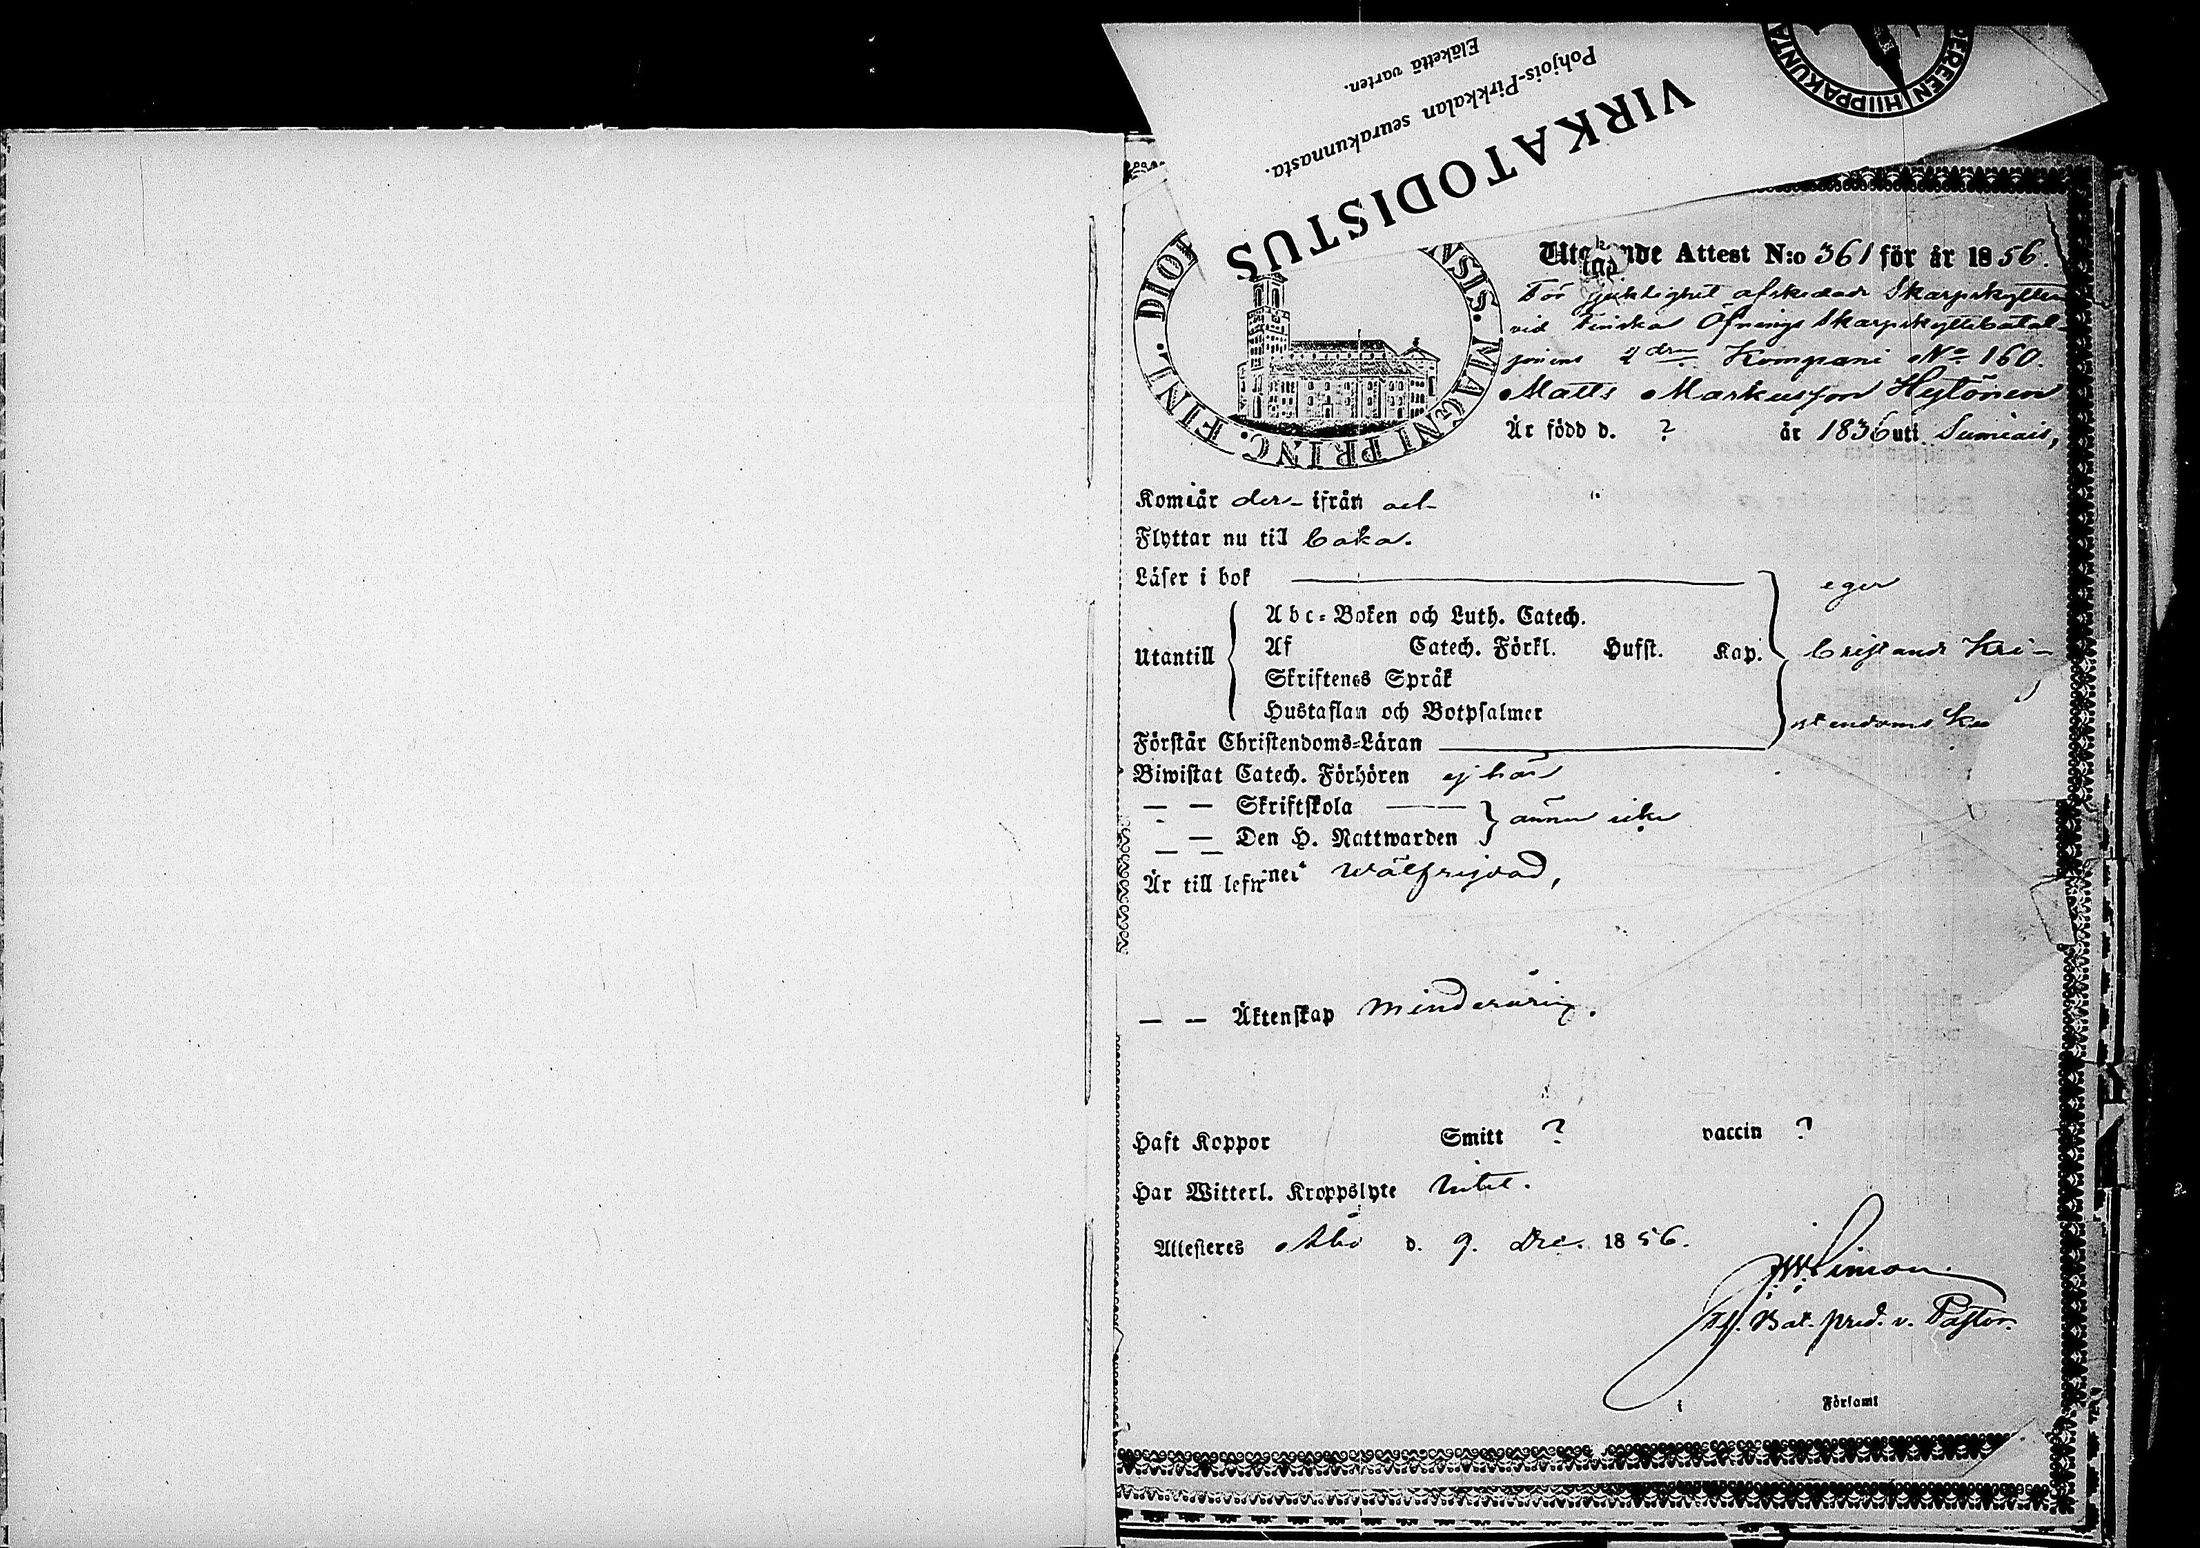 TAMPEREEN HIIPPAKUNTA
VIRKATODISTUS
Pohjois-Pirkkalan seurakunnasta.
Eläkettä varten.
FINL. DIO NSIS. MAGNI PRINC.
Utgående Attest N:o 361 för år 1856.
För sjuklighet afskedade Skarpskytten
vid Finska Öfnings Skarpskyttebatal-
jonens 2dra Kompani No 160.
Matts Markusson Hytönen
Är född d. ? år 1836 uti Sumiais,
Kom år der- ifrån och
Flyttar nu till
Läser i bok eger
Utantill
Abc-Boken och Luth. Catech.
Af Catech. Förkl. Hufst. Kap. bristande Kri-
Skriftenes Språk
Hustaflan och Botpsalmer stendoms
Förstår Christendoms-Läran
Biwistat Catech. Förhören ej här
— — Skriftskola
— — Den H. Nattwarden ännu icke
Är till lefwernet wälfrejdad,
— — Äktenskap minderårig.
Haft Koppor Smitt ? vaccin ?
Har Witterl. Kroppslyte intet.
Attesteres Åbo d. 9. Dec. 1856.
Simon.
Bat. pred. v. Pastor.
i Församl